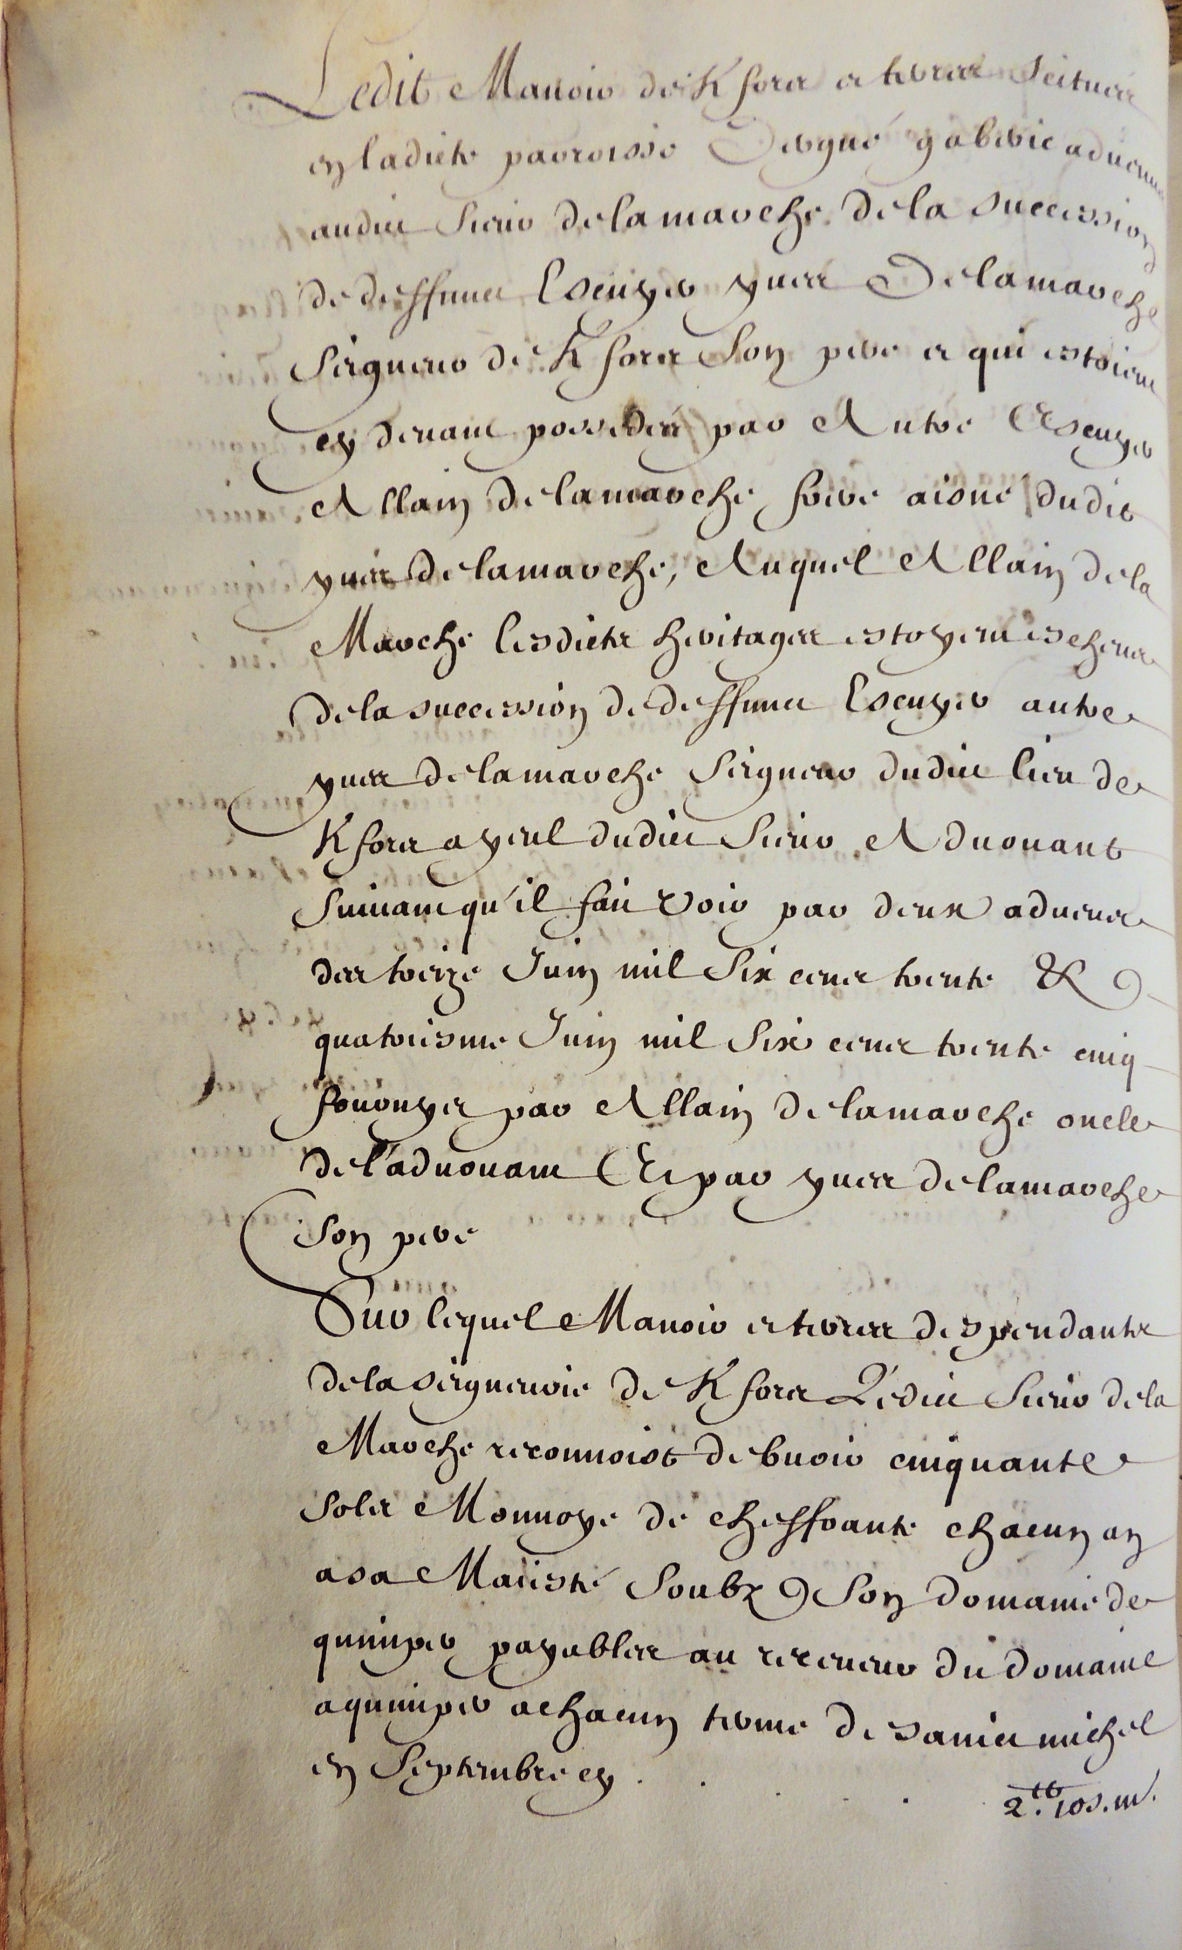 Ledit Manoir de Kfors et terres scitues
en ladicte parroisse dergué gaberic aduenus
audict sieur delamarche de la succession
de deffunct Escuyer yues Delamarche
seigneur de Kfors son pere et qui estoient
cy deuant possedes par Autre Escuyer
Allain Delamarche frere aisné dudit
yues Delamarche, Auquel Allain Dela
Marche lesdicts heritages estoyent eschus
dela succession de deffunct Escuyer autre
yues Delamarche seigneur dudict lieu de
Kfors ayeul dudict sieur Aduouant
suiuant qu'il faict voir par deux adueus
des treize Juin mil six cents trente &
quatriesme Juin mil six cents trente cinq
fournyes par Allain Delamarche oncle
de l'aduouant Et par yues Delamarche
son pere
Sur lequel Manoir et terres despendants
dela seigneurie de Kfors Ledict sieur dela
Marche reconnoist debuoir cinquante
sols Monnoye de cheffrante chacun an
a sa Maiesté soubz son domaine de
quimper payables au receueur du domaine
a quimper a chacun terme de sainct michel
en Septembre cy . . . . 2.tt 10s.m.